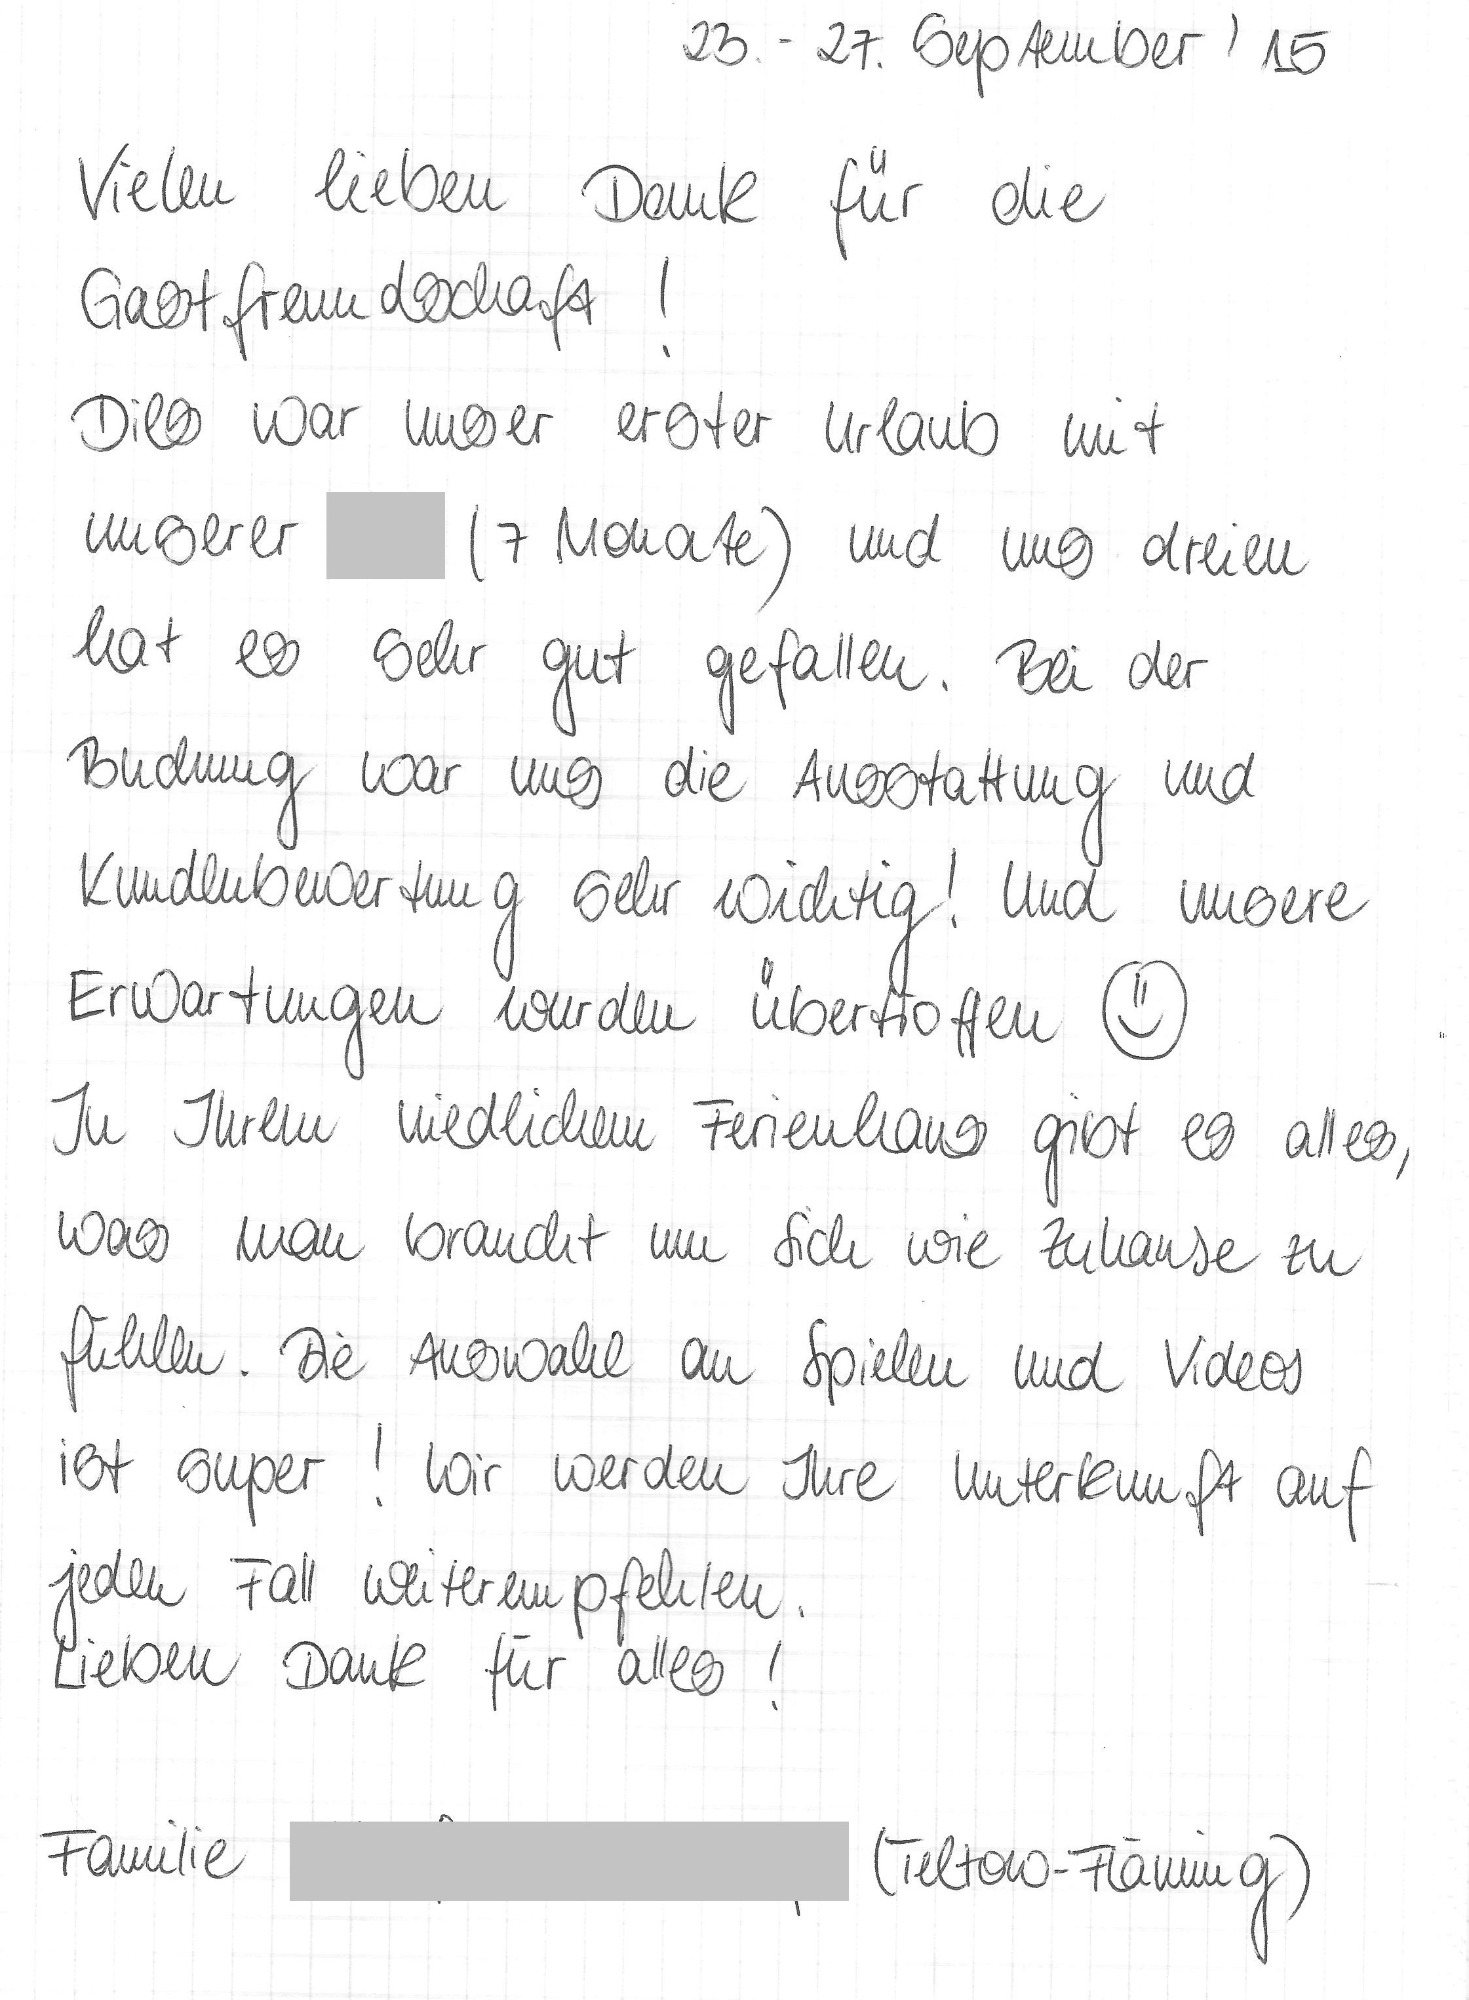 23. - 27. September '15
Vielen lieben Dank für die
Gastfreundschaft !
Dies war unser erster Urlaub mit
unserer (7 Monate) und uns dreien
hat es sehr gut gefallen. Bei der
Buchung war uns die Ausstattung und
Kundenbewertung sehr wichtig! Und unsere
Erwartungen wurden übertroffen
In Ihrem niedlichem Ferienhaus gibt es alles,
was man braucht um sich wie Zuhause zu
fühlen. Die Auswahl an Spielen und Videos
ist super ! Wir werden Ihre Unterkunft auf
jeden Fall weiterempfehlen.
Lieben Dank für alles !
Familie (Teltow-Fläming)